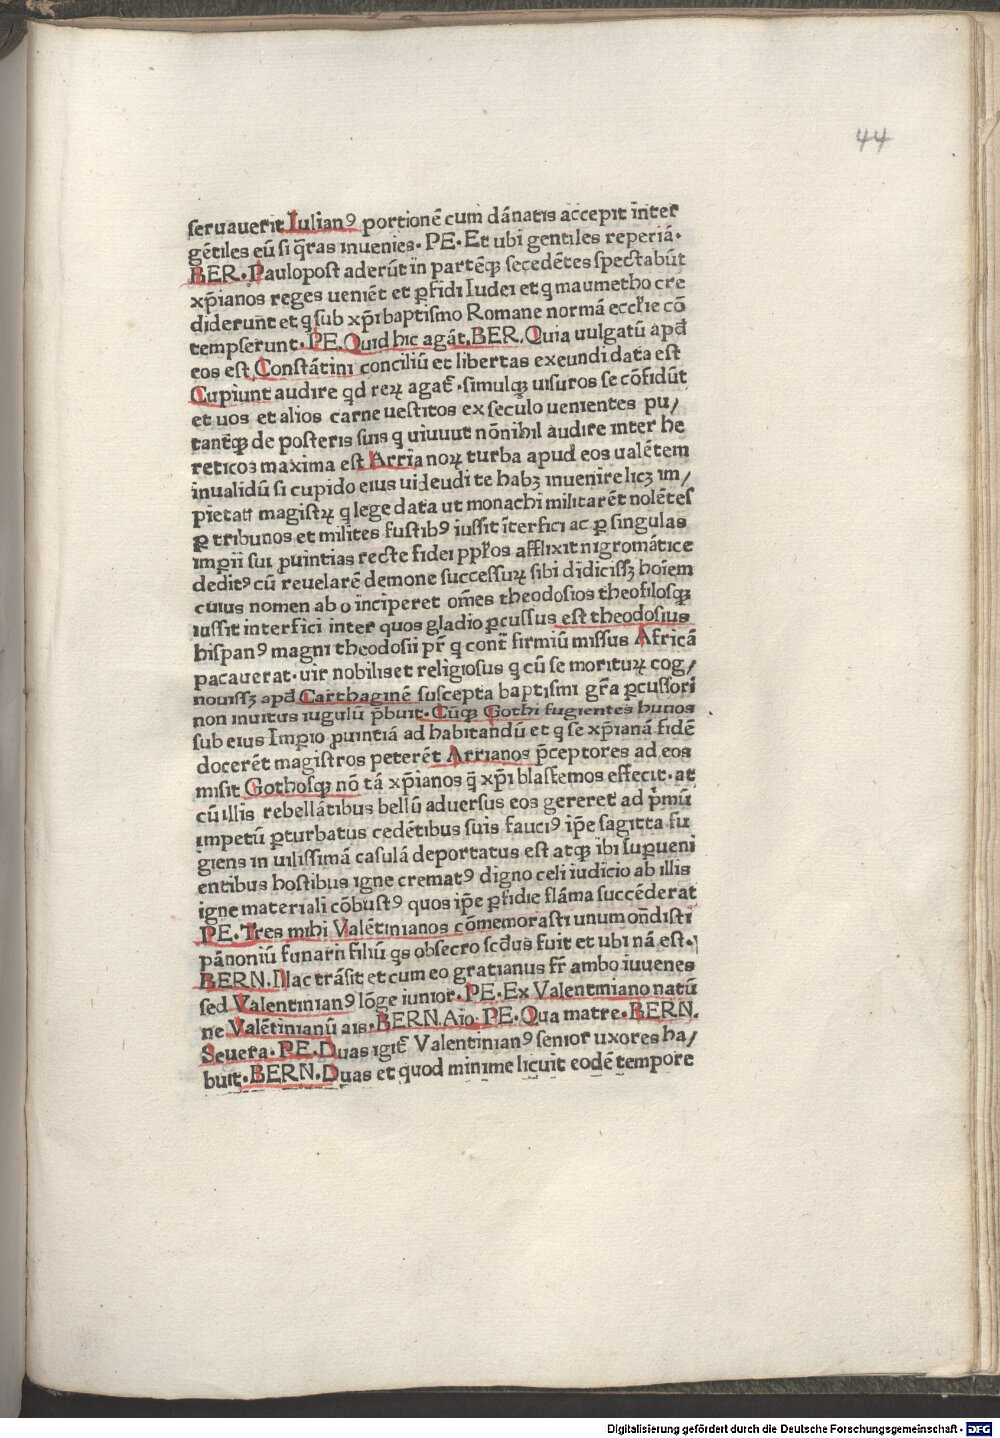 44
seruauerit Iulianꝰ portionē cum dānatis accepit īnter
gētiles eū si q̄ras inuenies. PE. Et ubi gentiles reperiā.
BER. Paulopost aderūt in partēqꝫ secedētes spectabūt
xp̄ianos reges ueniēt et ꝑfidi Iudei et q maumetho cre
diderunt et q sub xp̄i baptismo Romane normā eccłie cō
tempserunt. PE. Quid hic agāt. BER. Quia uulgatū apd̄
eos est Constātini conciliū et libertas exeundi data est
Cupiunt audire qd reꝝ agat̄. simulqꝫ uisuros se cōfidūt
et uos et alios carne uestitos ex seculo uenientes pu/
tantēqꝫ de posteris suis q uiuuut nōnihil audire inter he
reticos maxima est Arrianoꝝ turba apud eos ualētem
inualidū si cupido eius uideudi te habꝫ inuenire licꝫ im/
pietatꝭ magistꝝ q lege data ut monachi militarēt nolētes
ꝑ tribunos et milites fustibꝰ iussit īterfici ac ꝑ singulas
imꝑii sui ꝓuintias recte fidei ppłos afflixit nigromātice
deditꝰ cū reuelarē demone successuꝝ sibi didicissꝫ hoīem
cuius nomen ab o inciperet om̄es theodosios theofilosqꝫ
iussit interfici inter quos gladio ꝑcussus est theodosius
hispanꝰ magni theodosii pr̄ q cont̄ firmiū missus Africā
pacauerat. uir nobilis et religiosus q cū se morituꝝ cog/
nouissꝫ apd̄ Carthaginē suscepta baptismi gr̄a ꝑcussori
non inuitus iugulū p̄buit. Cūqꝫ Gothi fugientes hunos
sub eius Imꝑio ꝓuintiā ad habitandū et q se xp̄ianā fidē
docerēt magistros peterēt Arrianos p̄ceptores ad eos
misit Gothosqꝫ nō tā xp̄ianos q̄ xp̄i blasfemos effecit. at
cū illis rebellātibus bellū aduersus eos gereret ad p̄mū
impetū ꝑturbatus cedētibus suis fauciꝰ ip̄e sagitta fu
giens in uilissimā casulā deportatus est atqꝫ ibi suꝑueni
entibus hostibus igne crematꝰ digno celi iudicio ab illis
igne materiali cōbustꝰ quos ip̄e ꝑfidie flāma succēderat
PE. Tres mihi Valētinianos cōmemorasti unum on̄disti
pānoniū funarii filiū qs obsecro scd̄us fuit et ubi nā est.
BERN. Illac trāsit et cum eo gratianus fr̄ ambo iuuenes
sed Valentinianꝰ lōge iunior. PE. Ex Valentiniano natū
ne Valētinianū ais. BERN. Aio. PE. Qua matre. BERN.
Seuera. PE. Duas igit̄ Valentinianꝰ senior uxores ha/
buit. BERN. Duas et quod minime licuit eodē tempore
Digitalisierung gefördert durch die Deutsche Forschungsgemeinschaft - DFG